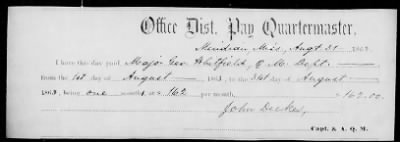 Office Dist. Pay Quartermaster.
Meridian, Miss, Augt 31 186
I have the day paid Major Geo. Whitfield, Q. M. Dept.
from the 1st day of August 1863, to the 31st day of August
1863, being one months, at 162 per month, 162.00.
John Decker,
Capt. & A. Q. M.